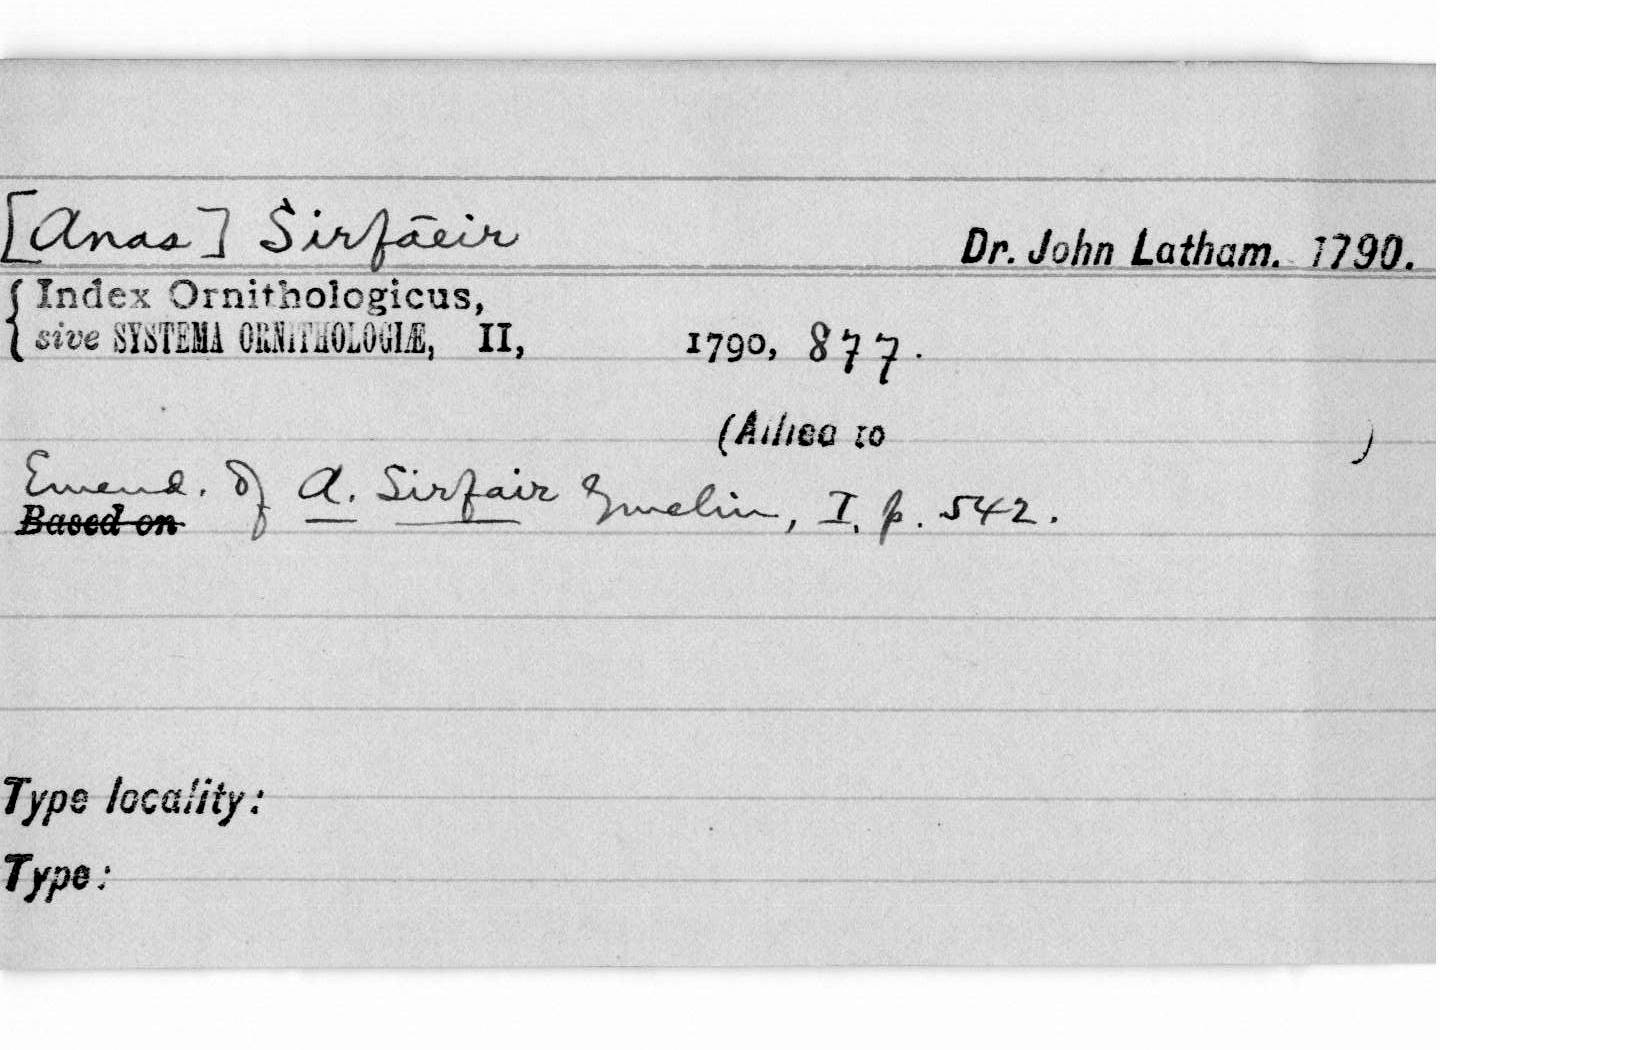 [Anas] Sirfāeir
Dr. John Latham. 1790.
Index Ornithologicus,
sive SYSTEMA ORNITHOLOGIÆ, II, 1790, 877.
(Allied to )
Emend. of A. Sirfair Gmelin, I, p. 542.
Based on
Type locality:
Type: